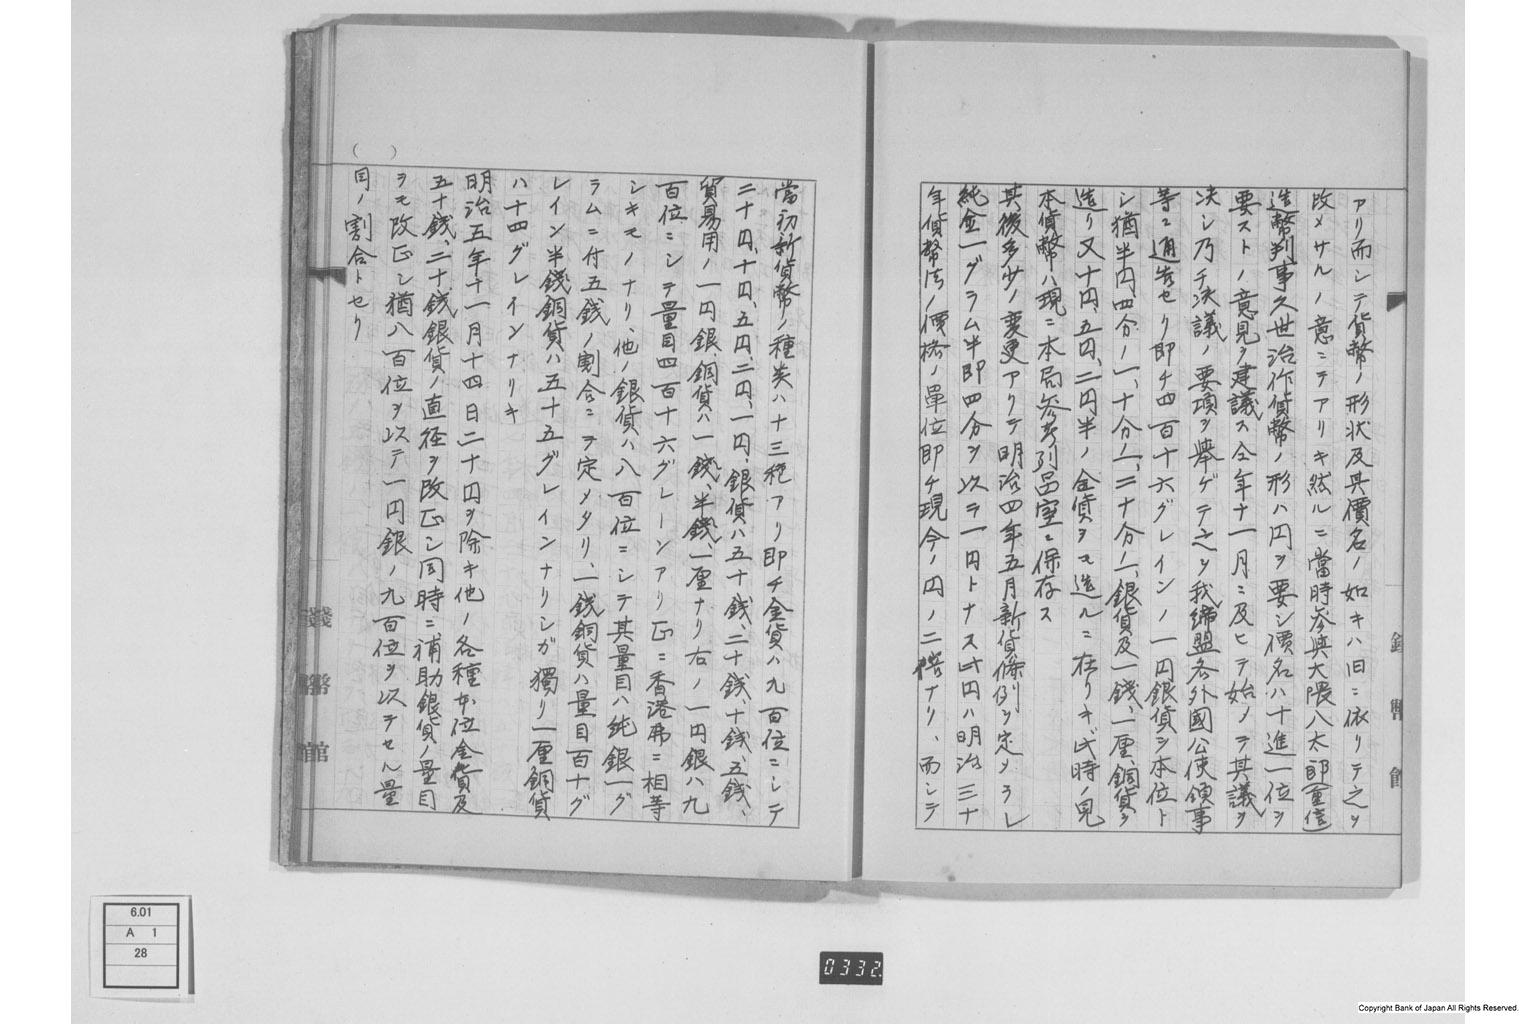 アリ而シテ貨幣ノ形状及其價名ノ如キハ旧ニ依リテ之ヲ
改メサルノ意ニテアリキ然ルニ當時参與大隈八太郎重信
造幣判事久世治作貨幣ノ形ハ円ヲ要シ價名ハ十進一位ヲ
要ストノ意見ヲ建議ス仝年十一月ニ及ヒテ始メテ其議ヲ
決シ乃チ決議ノ要項ヲ舉ゲテ之ヲ我締盟各外國公使領事
等ニ通告セリ即チ四百十六グレインノ一円銀貨ヲ本位ト
シ猶半円、四分ノ一、十分ノ一、二十分ノ一、銀貨及一錢、一厘、銅貨ヲ
造リ又十円、五円、二円半ノ金貨ヲモ造ルニ在リキ此時ノ見
本貨幣ハ現ニ本局参考列品室ニ保存ス
其後多少ノ変更アリテ明治四年五月新貨條例ヲ定メラレ
純金一グラム半即四分ヲ以テ一円トナス此円ハ明治三十
年貨幣法ノ價格ノ單位即チ現今ノ円ノ二倍ナリ、而シテ
當初新貨幣ノ種類ハ十三種アリ即チ金貨ハ九百位ニシテ
二十円、十円、五円、二円、一円、銀貨ハ五十銭、二十銭、十銭、五銭、
貿易用ノ一円銀、銅貨ハ一銭、半銭、一厘ナリ右ノ一円銀ハ九
百位ニシテ量目四百十六グレーンアリ正ニ香港弗ニ相等
シキモノナリ、他ノ銀貨ハ八百位ニシテ其量目ハ純銀一グ
ラムニ付五銭ノ割合ニヲ定メタリ、一銭銅貨ハ量目百十グ
レイン半銭銅貨ハ五十五グレインナリシガ獨リ一厘銅貨
ハ十四グレインナリキ
明治五年十一月十四日二十円ヲ除キ他ノ各種本位金貨及
五十銭、二十銭銀貨ノ直径ヲ改正シ同時ニ補助銀貨ノ量目
ヲモ改正シ猶八百位ヲ以テ一円銀ノ九百位ヲ以テセル量
目ノ割合トセリ
( )
錢幣館
錢幣館
6.01
A 1
28
0332
Copyright Bank of Japan All Rights Reserved.